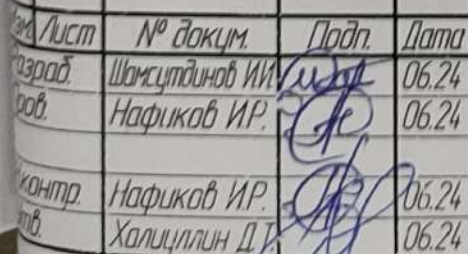 Изм. Лист № докум. Подп. Дата
Разраб. Шамсутдинов И.И. 06.24
Пров. Нафиков И.Р. 06.24
Н.контр. Нафиков И.Р. 06.24
Утв. Халиуллин Д.Т. 06.24